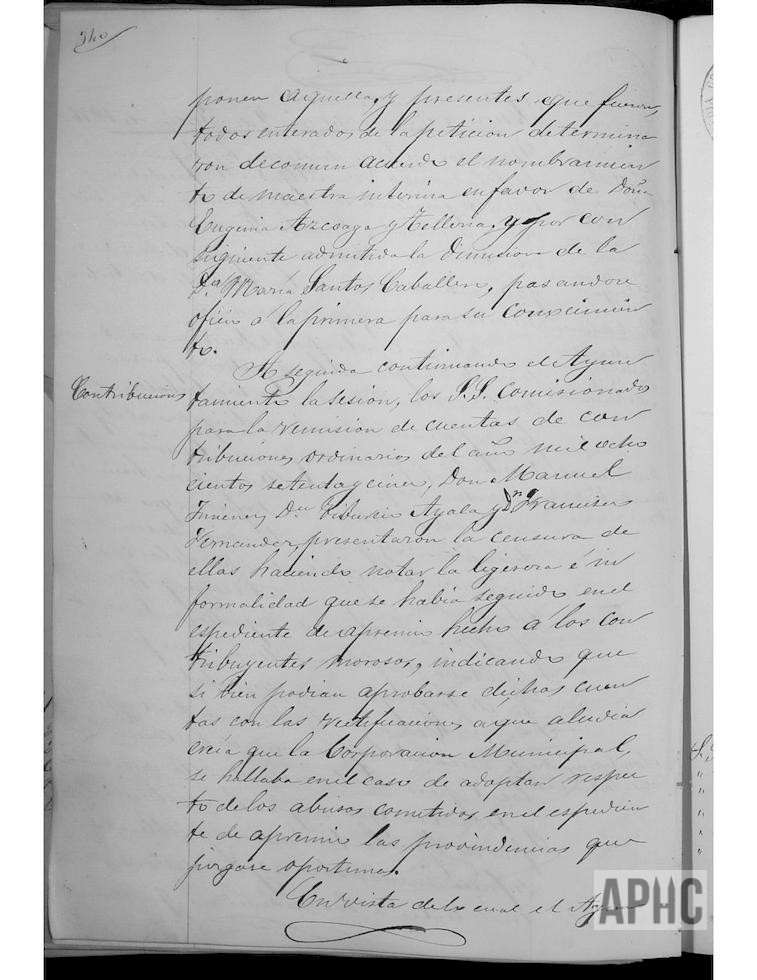 340
ponen aquella, y presentes que fueron,
todos enterados de la peticion determina
ron de comun acuerdo el nombramien
to de maestra interina en favor de Doña
Eugenia Azcoaga y Telleria, y por con
siguiente admitida la dimision de la
D.ª María Santos Caballero, pasandose
oficio á la primera para su conocimien
to.
A seguida continuando el Ayun
Contribuciones
tamiento la sesion, los S.S. Comisionados
para la revision de cuentas de con
tribuciones ordinarias del año mil ocho
cientos setenta y cinco, Don Manuel
Jimenez, D.n Tiburcio Ayala y D.n Francisco
Fernandez, presentaron la censura de
ellas haciendo notar la ligereza é in
formalidad que se habia seguido en el
espediente de apremio hecho á los con
tribuyentes morosos, indicando que
si bien podian aprobarse dichas cuen
tas con las rectificaciones a que aludia
creia que la Corporacion Municipal,
se hallaba en el caso de adoptar respec
to de los abusos cometidos en el espedien
te de apremio las providencias que
juzgase oportunas.
En vista de lo cual el Ayun
APHC